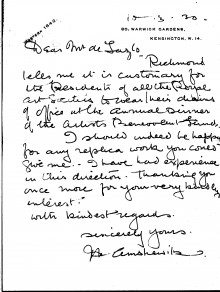 80, WARWICK GARDENS,
KENSINGTON, W. 14.
10-3-20.
Dear Mr de Laszlo
Richmond
tells me it is customary for
the Presidents of all the Royal
Art Societies to wear their chains
of office at the Annual Dinner
of the Artists Benevolent Fund.
I should indeed be happy
for any replica work you could
give me. - I have had experience
in this direction. Thanking you
once more for your very kindly
interest.
With kindest regards.
Sincerely yours.
Amshewitz